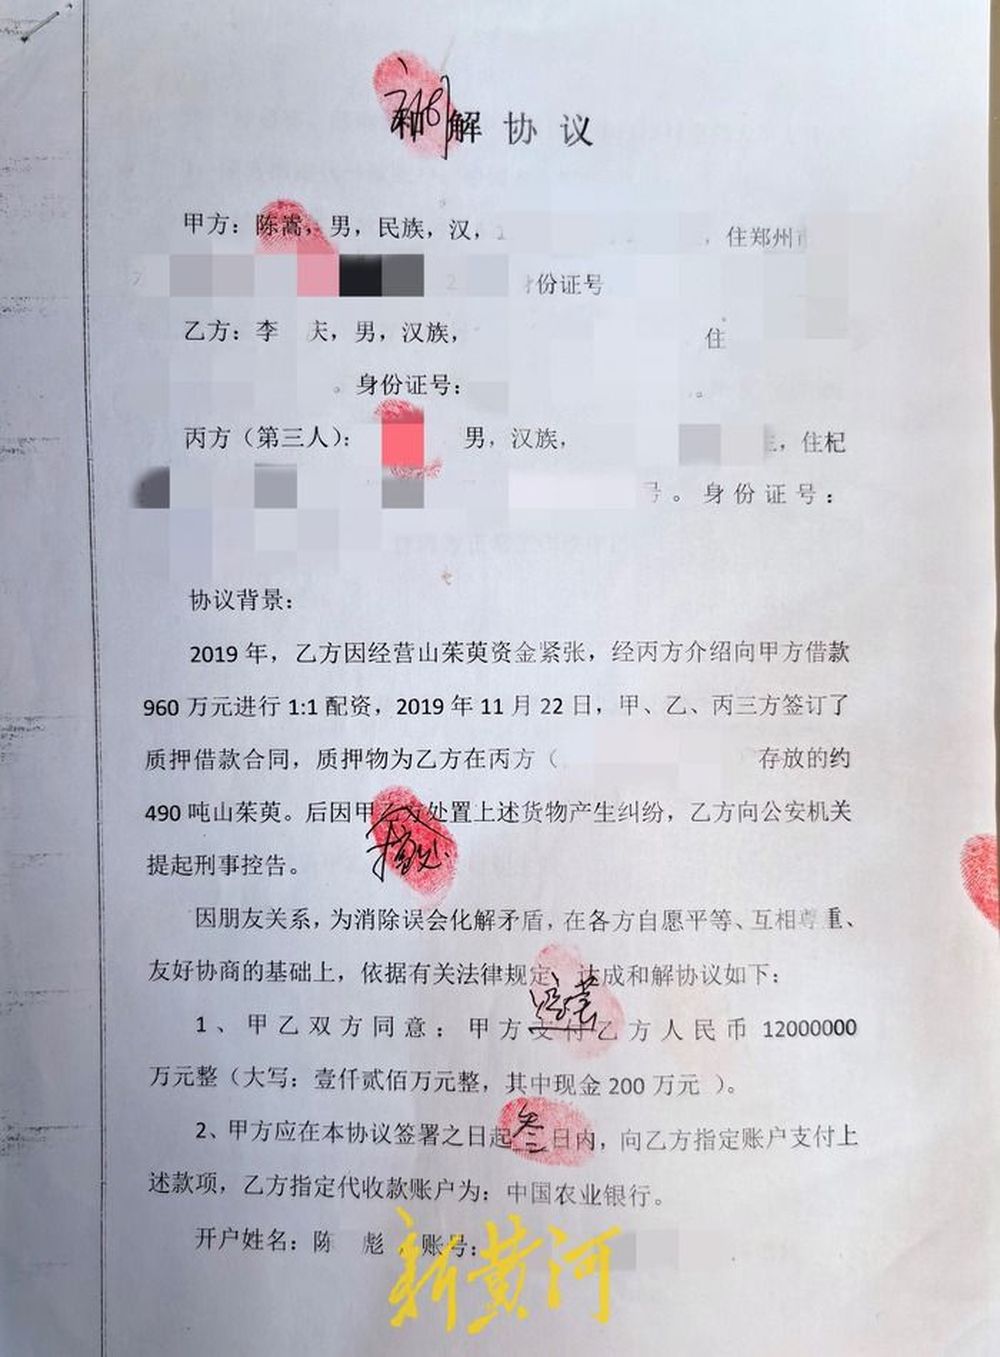 解协议
甲方：陈嵩，男，民族，汉，1 ，住郑州市
2 身份证号
乙方：李 庆，男，汉族， 住
。身份证号： 。
丙方（第三人）： 男，汉族， 生，住杞
号。身份证号：
协议背景：
2019年，乙方因经营山茱萸资金紧张，经丙方介绍向甲方借款
960万元进行1:1配资，2019年11月22日，甲、乙、丙三方签订了
质押借款合同，质押物为乙方在丙方（ 存放的约
490吨山茱萸。后因甲乙方处置上述货物产生纠纷，乙方向公安机关
提起刑事控告。
因朋友关系，为消除误会化解矛盾，在各方自愿平等、互相尊重、
友好协商的基础上，依据有关法律规定，达成和解协议如下：
1、甲乙双方同意：甲方支付乙方人民币12000000
万元整（大写：壹仟贰佰万元整，其中现金200万元 ）。
2、甲方应在本协议签署之日起叁日内，向乙方指定账户支付上
述款项，乙方指定代收款账户为：中国农业银行。
开户姓名：陈 彪，账号：
新黄河